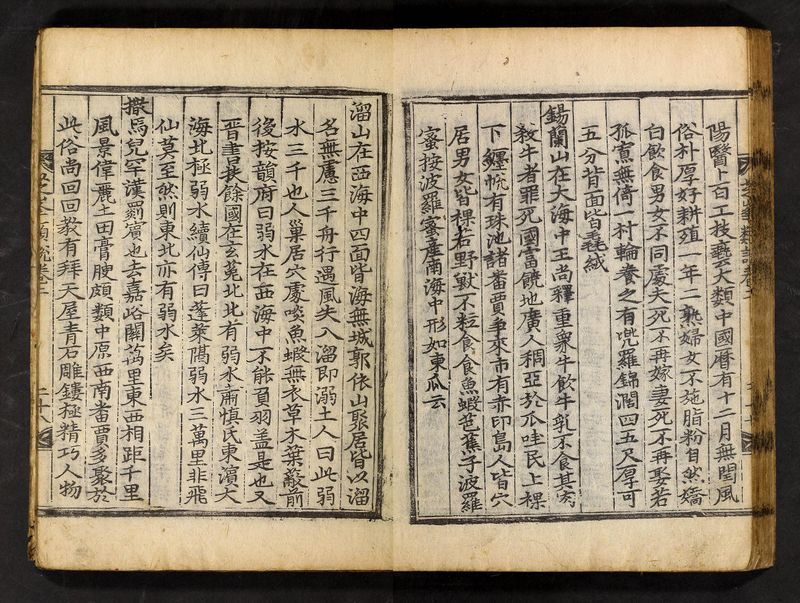 陽醫卜百工技藝大類中國曆有十二月無閏風
俗朴厚好耕殖一年二熟婦女不施脂粉自然嬌
白飮食男女不同處夫死不再嫁妻死不再娶若
孤寡無倚一村輪養之有兜羅錦濶四五尺厚可
五分背面皆毳絨
錫蘭山在大海中王尚釋重衆牛飮牛乳不食其肉
殺牛者罪死國富饒地廣人稠亞於爪哇民上裸
下纏帨有珠池諸番賈爭來市有赤印島人皆穴
居男女皆裸若野獸不粒食食魚蝦芭蕉子波羅
蜜按波羅蜜產南海中形如東瓜云
溜山在西海中四面皆海無城郭依山聚居皆以溜
名無慮三千舟行遇風失入溜即溺土人曰此弱
水三千也人巢居穴處啖魚蝦無衣草木葉蔽前
後按韻府曰弱水在西海中不能負羽盖是也又
晉書曰扶餘國在玄菟北北有弱水肅愼氏東濱大
海北極弱水續仙傳曰蓬萊隔弱水三萬里非飛
仙莫至然則東北亦有弱水矣
撒馬兒罕漢罽賓也去嘉峪關萬里東西相距千里
風景偉麗土田膏腴頗類中原西南番賈多聚於
此俗尚回回敎有拜天屋青石雕鏤極精巧人物